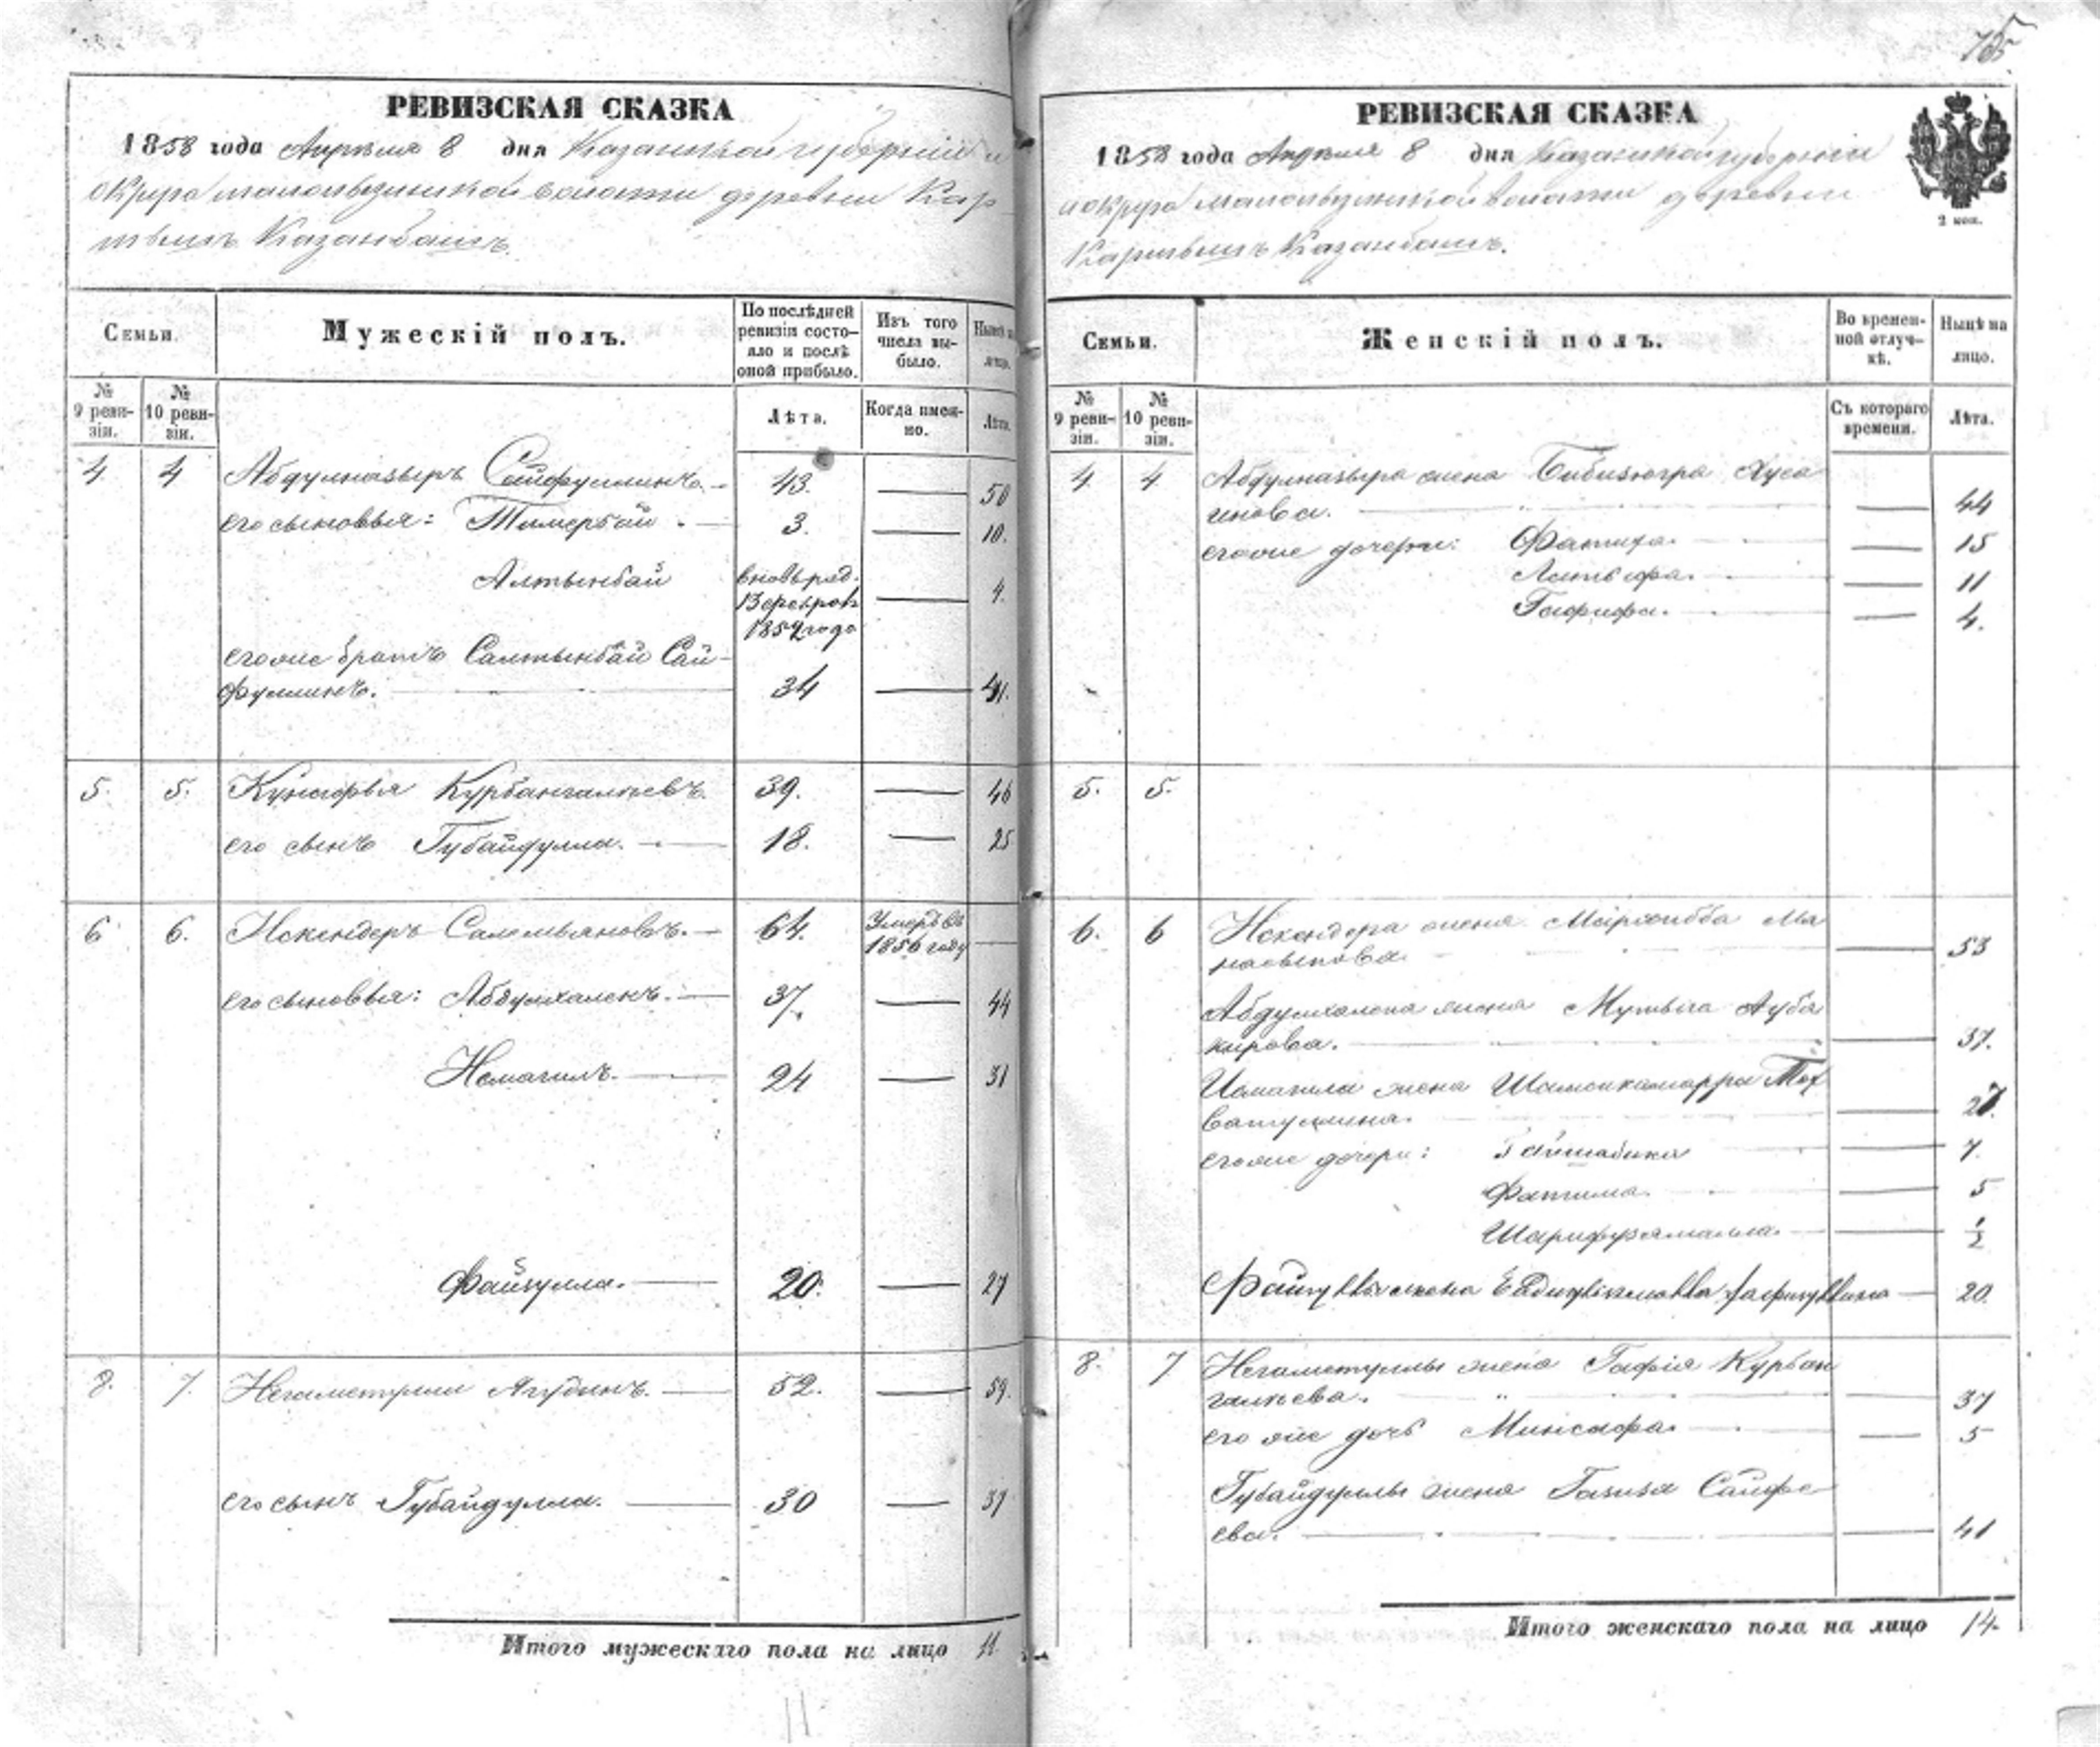 75
РЕВИЗСКАЯ СКАЗКА
1858 года Апреля 8 дня Казанской губернии и
округа малоатынской волости деревни Кар
тьешъ Казанбашъ.
Семьи.
Мужескій полъ.
По послѣдней
ревизіи состо-
яло и послѣ
оной прибыло.
Изъ того
числа вы-
было.
Нынѣ на
лицо.
№
9 реви-
зіи.
№
10 реви-
зіи.
Лѣта.
Когда имен-
но.
Лѣта.
4. 4 Абдулназыръ Сайфуллинъ. 43. 50
его сыновья: Тимербай. 3. 10.
Алтынбай вновьрад.
13 феврал 4.
1854 года
егоже братъ Салтынбай Сай-
фуллинъ. 34 41.
5. 5. Кунафья Курбангалеевъ. 39. 46
его сынъ Губайдулла. 18. 25
6 6. Искендеръ Салемьяновъ. 64. Умеръ въ
1856 году
его сыновья: Абдулхаленъ. 37. 44
Исмагилъ. 24 31
Файзулла. 20. 27
8. 7. Негаметулла Ягудинъ. 52. 59.
его сынъ Губайдулла. 30 37
Итого мужескаго пола на лицо 11.
11
РЕВИЗСКАЯ СКАЗКА
1858 года Апреля 8 дня Казанской губернии
и округа волости деревни
Казанбашъ.
2 коп.
Семьи.
Женскій полъ.
Во времен-
ной отлуч-
кѣ.
Нынѣ на
лицо.
№
9 реви-
зіи.
№
10 реви-
зіи.
Съ котораго
времени.
Лѣта.
4. 4. Абдулназыра жена Бибизюгра Хуса
инова. 44
егоже дочери: Фатиха. 15
Латыфа. 11
Гафифа. 4.
5. 5.
6. 6 Искендера жена Ма
53
Абдулхалена жена Ауба
кирова. 37.
Исмагила жена Шамсикамарра Тох
ватуллина. 27.
егоже дочери: 7.
Фатима. 5
Шарифузямалла. 1/2
Файзуллы жена 20.
8. 7 Негаметуллы жена Гафія Курбан
галеева. 37
его же дочь Минсафа. 5
Губайдуллы жена Газиза Сайфе
ева. 41
Итого женскаго пола на лицо 14.